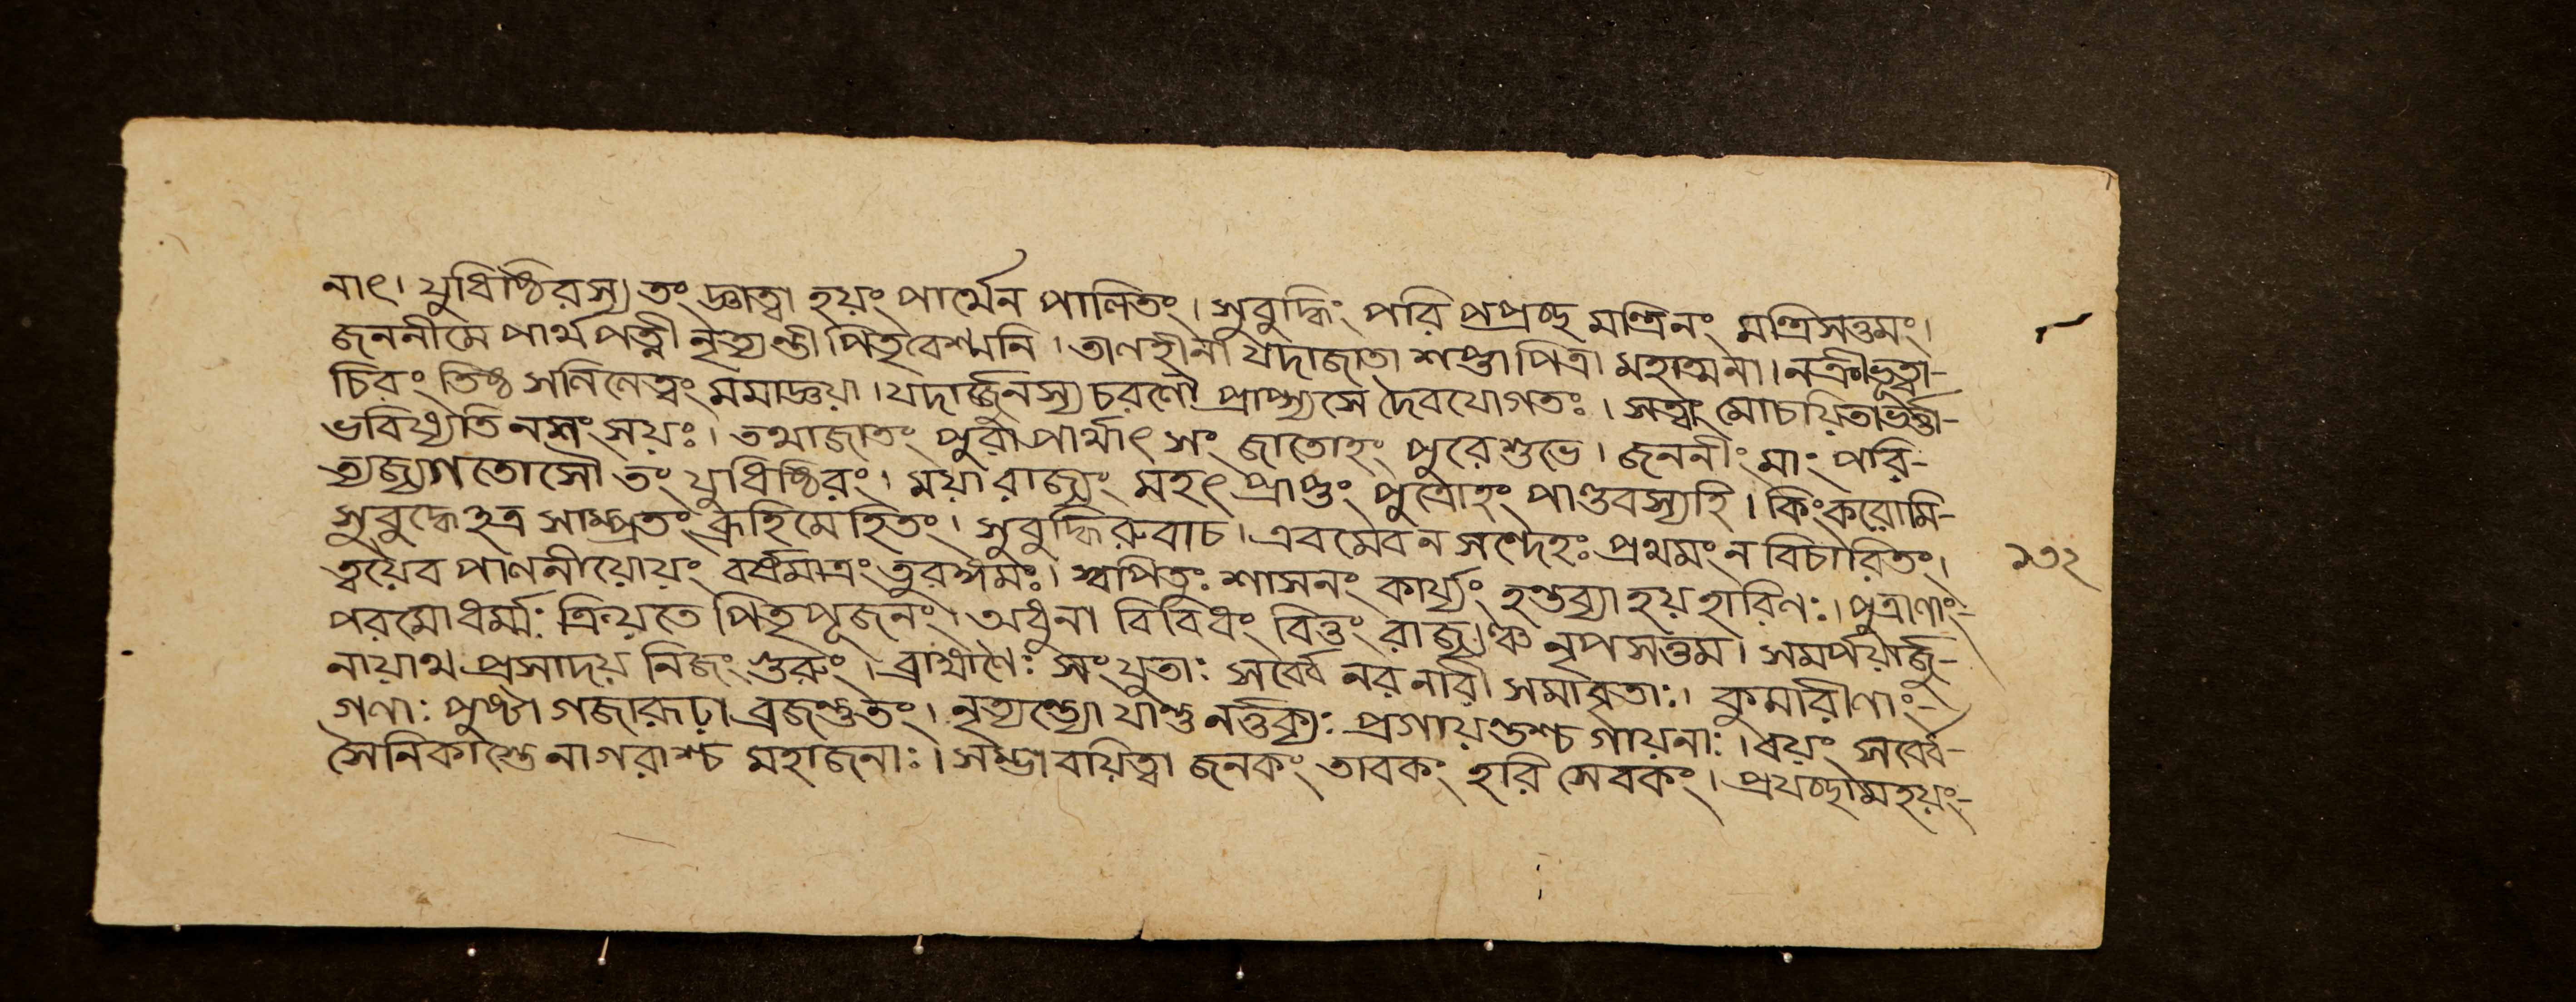 নাৎ। যুধিষ্ঠিরস্য তং জ্ঞাত্বা হয়ং পার্থেন পালিতং। সুবুদ্ধিং পরি পপ্রচ্ছ মন্ত্রিনং মন্ত্রিসত্তমং।
জননীমে পার্থপত্নী নৃত্যন্তী পিতৃবেশ্মনি। তালহীনা যদাজাতা শপ্তা পিত্রা মহাত্মনা। নক্রীভূত্বা-
চিরং তিষ্ঠ সলিলেত্বং মমাজ্ঞয়া। যদার্জ্জুনস্য চরণৌ প্রাপ্স্যসে দৈবযোগতঃ। সত্বাং মোচয়িতাভর্ত্তা-
ভবিষ্যতি নশংসয়ঃ। তথাজাতং পুরাপার্থাৎ সং জাতোহং পুরেশুভে। জননীং মাং পরি-
ত্যজ্যগতোসৌ তং যুধিষ্ঠিরং। ময়া রাজ্যং মহৎ প্রাপ্তং পুত্রোহং পাণ্ডবস্যহি। কিংকরোমি-
সুবুদ্ধেহত্র সাম্প্রতং ব্রূহিমেহিতং। সুবুদ্ধিরুবাচ। এবমেবন সন্দেহঃ প্রথমং ন বিচারিতং।
১৩২
ত্বয়ৈব পালনীয়োয়ং বর্ষমাত্রং তুরঙ্গমঃ। স্বপিতুঃ শাসনং কার্য্যং হন্তব্যা হয় হারিণঃ। পুত্রাণাং-
পরমোধর্ম্মঃ ক্রিয়তে পিতৃপূজনং। অধুনা বিবিধং বিত্তং রাজ্যঞ্চ নৃপসত্তম। সমর্পয়ার্জু-
নায়াথ প্রসাদয় নিজং গুরুং। ব্রাহ্মণৈঃ সংযুতাঃ সর্ব্বে নরনারী সমাবৃতাঃ। কুমারীণাং-
গণাঃ পুষ্টা গজারূঢ়া ব্রজন্তুতং। নৃত্যন্ত্যো যান্তু নর্ত্তক্যঃ প্রগায়ন্তশ্চ গায়নাঃ। ধয়ং সর্ব্বে-
সৈনিকাস্তে নাগরাশ্চ মহাজনাঃ। সম্ভাবয়িত্বা জনকং তাবকং হরি সেবকং। প্রযচ্ছামহয়ং-